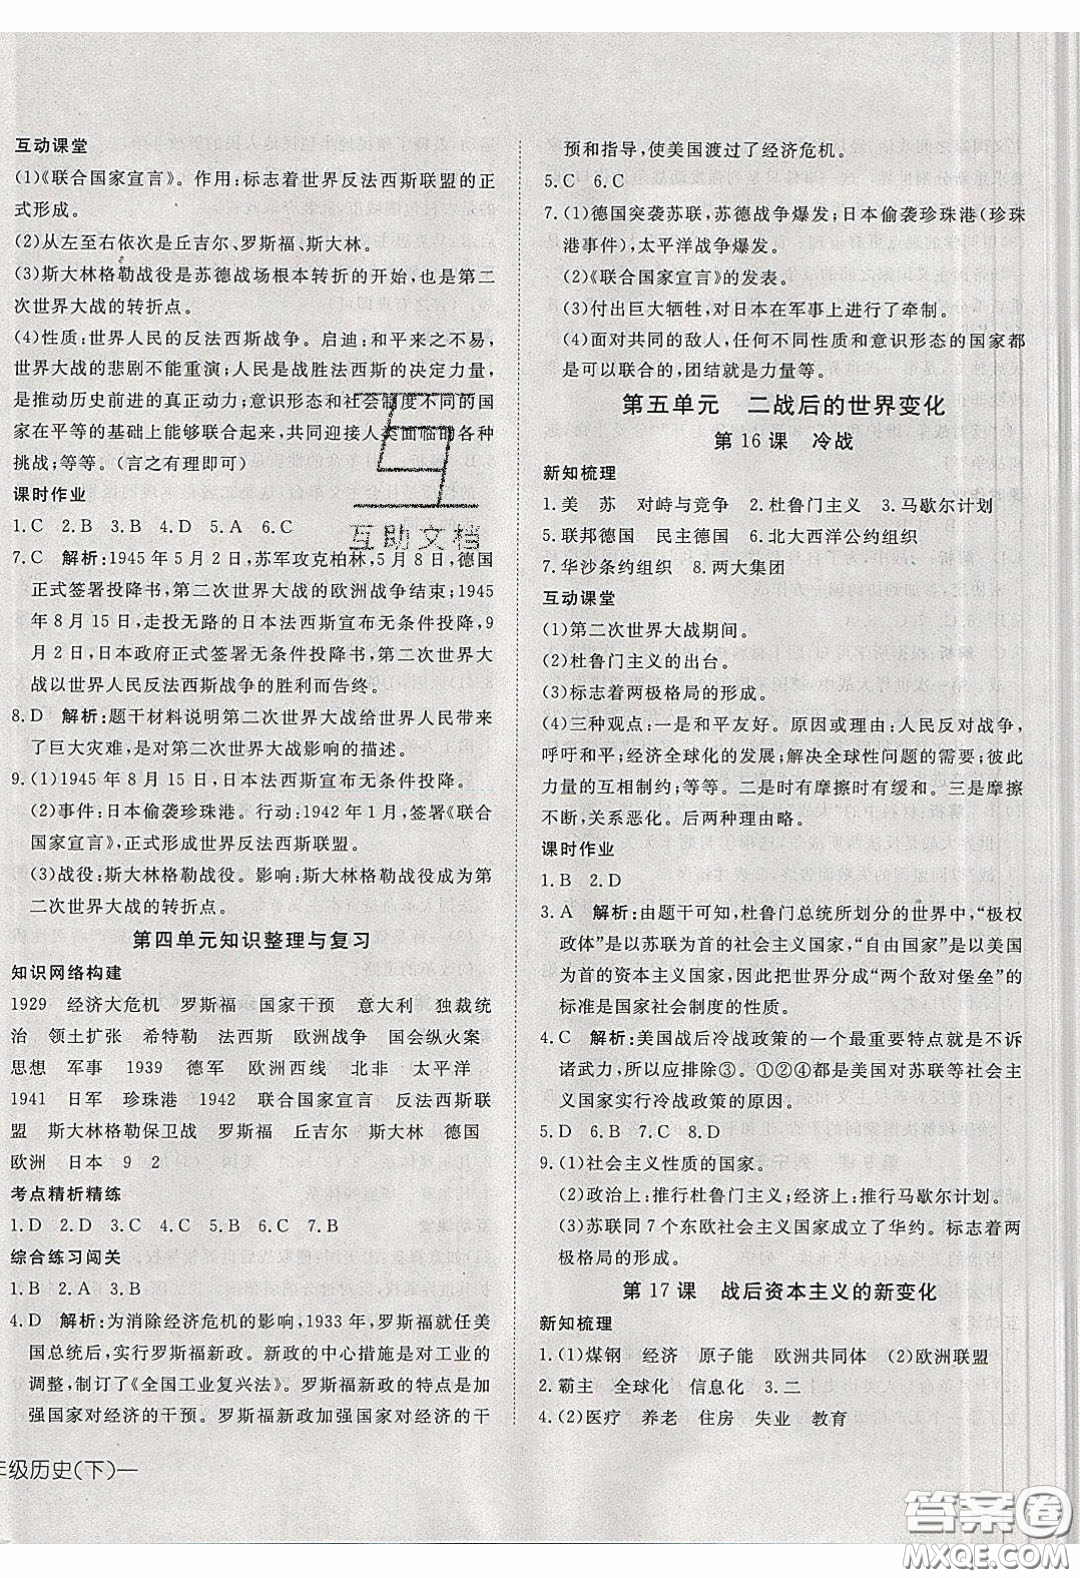 互动课堂
(1)《联合国家宣言》。作用:标志着世界反法西斯联盟的正
式形成。
(2)从左至右依次是丘吉尔、罗斯福、斯大林。
(3)斯大林格勒战役是苏德战场根本转折的开始,也是第二
次世界大战的转折点。
(4)性质:世界人民的反法西斯战争。启迪:和平来之不易,
世界大战的悲剧不能重演;人民是战胜法西斯的决定力量,
是推动历史前进的真正动力;意识形态和社会制度不同的国
家在平等的基础上能够联合起来,共同迎接人类面临的各种
挑战;等等。(言之有理即可)
课时作业
1.C 2.B 3.B 4.D 5.A 6.C
7.C 解析:1945年5月2日,苏军攻克柏林,5月8日,德国
正式签署投降书,第二次世界大战的欧洲战争结束;1945
年8月15日,走投无路的日本法西斯宣布无条件投降,9
月2日,日本政府正式签署无条件投降书,第二次世界大
战以世界人民反法西斯战争的胜利而告终。
8.D 解析:题干材料说明第二次世界大战给世界人民带来
了巨大灾难,是对第二次世界大战影响的描述。
9.(1)1945年8月15日,日本法西斯宣布无条件投降。
(2)事件:日本偷袭珍珠港。行动:1942年1月,签署《联合
国家宣言》,正式形成世界反法西斯联盟。
(3)战役:斯大林格勒战役。影响:斯大林格勒战役成为第
二次世界大战的转折点。
第四单元知识整理与复习
知识网络构建
1929 经济大危机 罗斯福 国家干预 意大利 独裁统
治 领土扩张 希特勒 法西斯 欧洲战争 国会纵火案
思想 军事 1939 德军 欧洲西线 北非 太平洋
1941 日军 珍珠港 1942 联合国家宣言 反法西斯联
盟 斯大林格勒保卫战 罗斯福 丘吉尔 斯大林 德国
欧洲 日本 9 2
考点精析精练
1.D 2.D 3.C 4.C 5.B 6.C 7.B
综合练习闯关
1.B 2.A 3.B
4.D 解析:为消除经济危机的影响,1933年,罗斯福就任美
国总统后,实行罗斯福新政。新政的中心措施是对工业的
调整,制订了《全国工业复兴法》。罗斯福新政的特点是加
强国家对经济的干预。罗斯福新政加强国家对经济的干
预和指导,使美国渡过了经济危机。
5.C 6.C
7.(1)德国突袭苏联,苏德战争爆发;日本偷袭珍珠港(珍珠
港事件),太平洋战争爆发。
(2)《联合国家宣言》的发表。
(3)付出巨大牺牲,对日本在军事上进行了牵制。
(4)面对共同的敌人,任何不同性质和意识形态的国家都
是可以联合的,团结就是力量等。
第五单元 二战后的世界变化
第16课 冷战
新知梳理
1.美 苏 对峙与竞争 2.杜鲁门主义 3.马歇尔计划
5.联邦德国 民主德国 6.北大西洋公约组织
7.华沙条约组织 8.两大集团
互动课堂
(1)第二次世界大战期间。
(2)杜鲁门主义的出台。
(3)标志着两极格局的形成。
(4)三种观点:一是和平友好。原因或理由:人民反对战争,
呼吁和平;经济全球化的发展;解决全球性问题的需要;彼此
力量的互相制约;等等。二是时有摩擦时有缓和。三是摩擦
不断,关系恶化。后两种理由略。
课时作业
1.B 2.D
3.A 解析:由题干可知,杜鲁门总统所划分的世界中,“极权
政体”是以苏联为首的社会主义国家,“自由国家”是以美国
为首的资本主义国家,因此把世界分成“两个敌对堡垒”的
标准是国家社会制度的性质。
4.C 解析:美国战后冷战政策的一个重要特点就是不诉
诸武力,所以应排除③。①②④都是美国对苏联等社会主
义国家实行冷战政策的原因。
5.D 6.B 7.C 8.D
9.(1)社会主义性质的国家。
(2)政治上:推行杜鲁门主义;经济上:推行马歇尔计划。
(3)苏联同7个东欧社会主义国家成立了华约。标志着两
极格局的形成。
第17课 战后资本主义的新变化
新知梳理
1.(1)煤钢 经济 原子能 欧洲共同体 (2)欧洲联盟
2.霸主 全球化 信息化 3.二
4.(2)医疗 养老 住房 失业 教育
年级历史(下)—
互助文档
答案圈
MXQE.COM